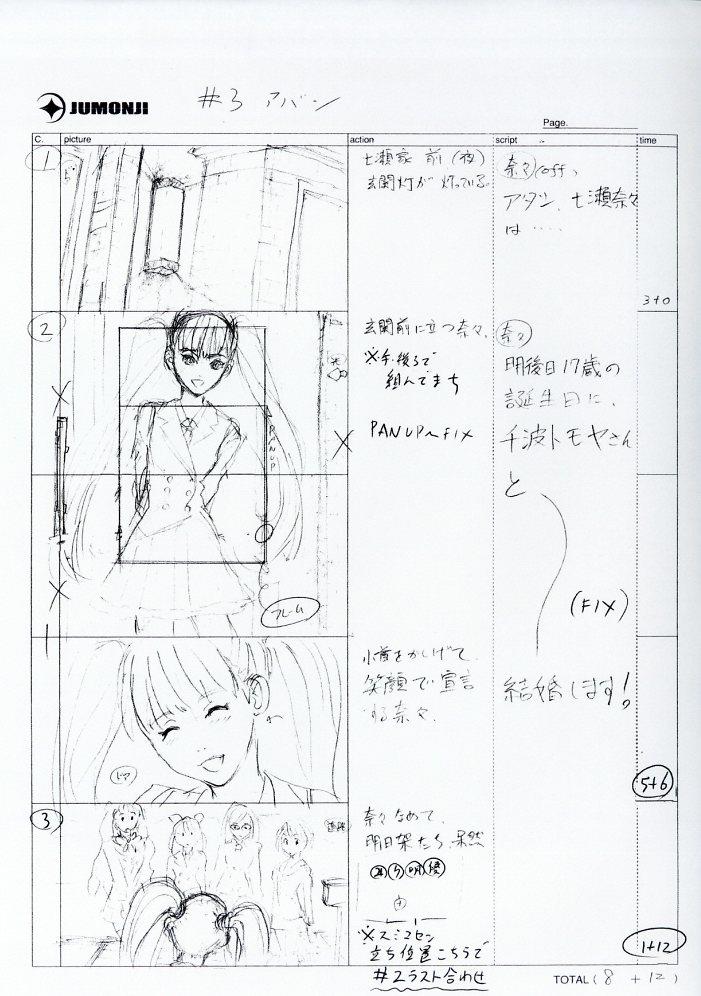 JUMONJI
#3 アバン
Page.
C.
picture
action
script
time
1
七瀬家 前 (夜)
玄関灯が 灯っている。
奈々 off、
アタシ、七瀬奈々
は‥‥
3+0
2
PAN UP
フレーム
玄関前に立つ奈々、
※手、後ろで
組んでまち
PAN UP〜FIX
奈々
明後日17歳の
誕生日に、
千波トモヤさん
と
(FIX)
小首をかしげて、
笑顔で宣言
する奈々、
結婚します!
5+6
3
道路
奈々なめて、
明日架たち、呆然
※スミマセン
立ち位置こちらで
#2ラスト合わせ
1+12
TOTAL ( 8 + 12 )